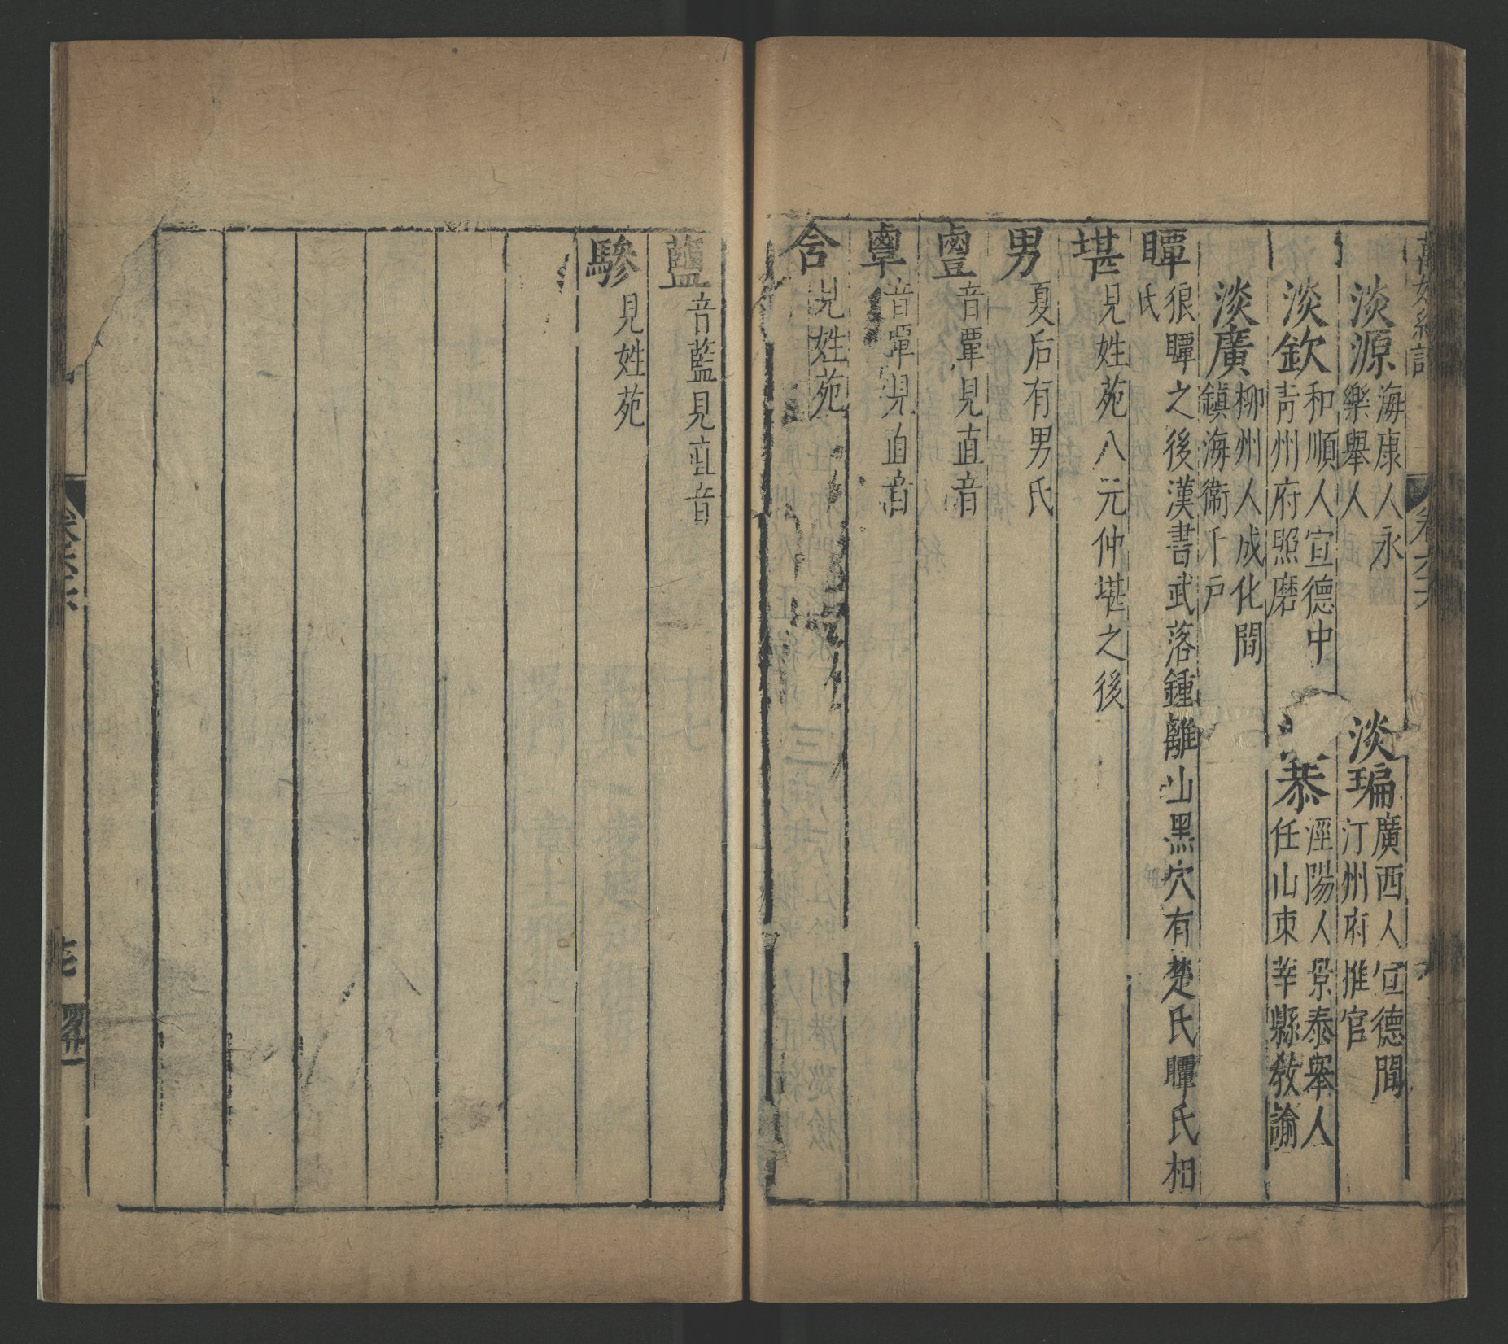 淡源海康人永樂舉人 淡㻞廣西人宣德間汀州府推官
淡欽和順人宣德中青州府照磨 恭涇陽人景泰舉人任山東莘縣敎諭
淡廣柳州人成化間鎮海衞千戶
瞫狼瞫之後漢書武落鍾離山黑穴有楚氏瞫氏相氏
堪見姓苑八元仲堪之後
男夏后有男氏
音覃見直音
音覃見直音
含見姓苑
音藍見直音
驂見姓苑